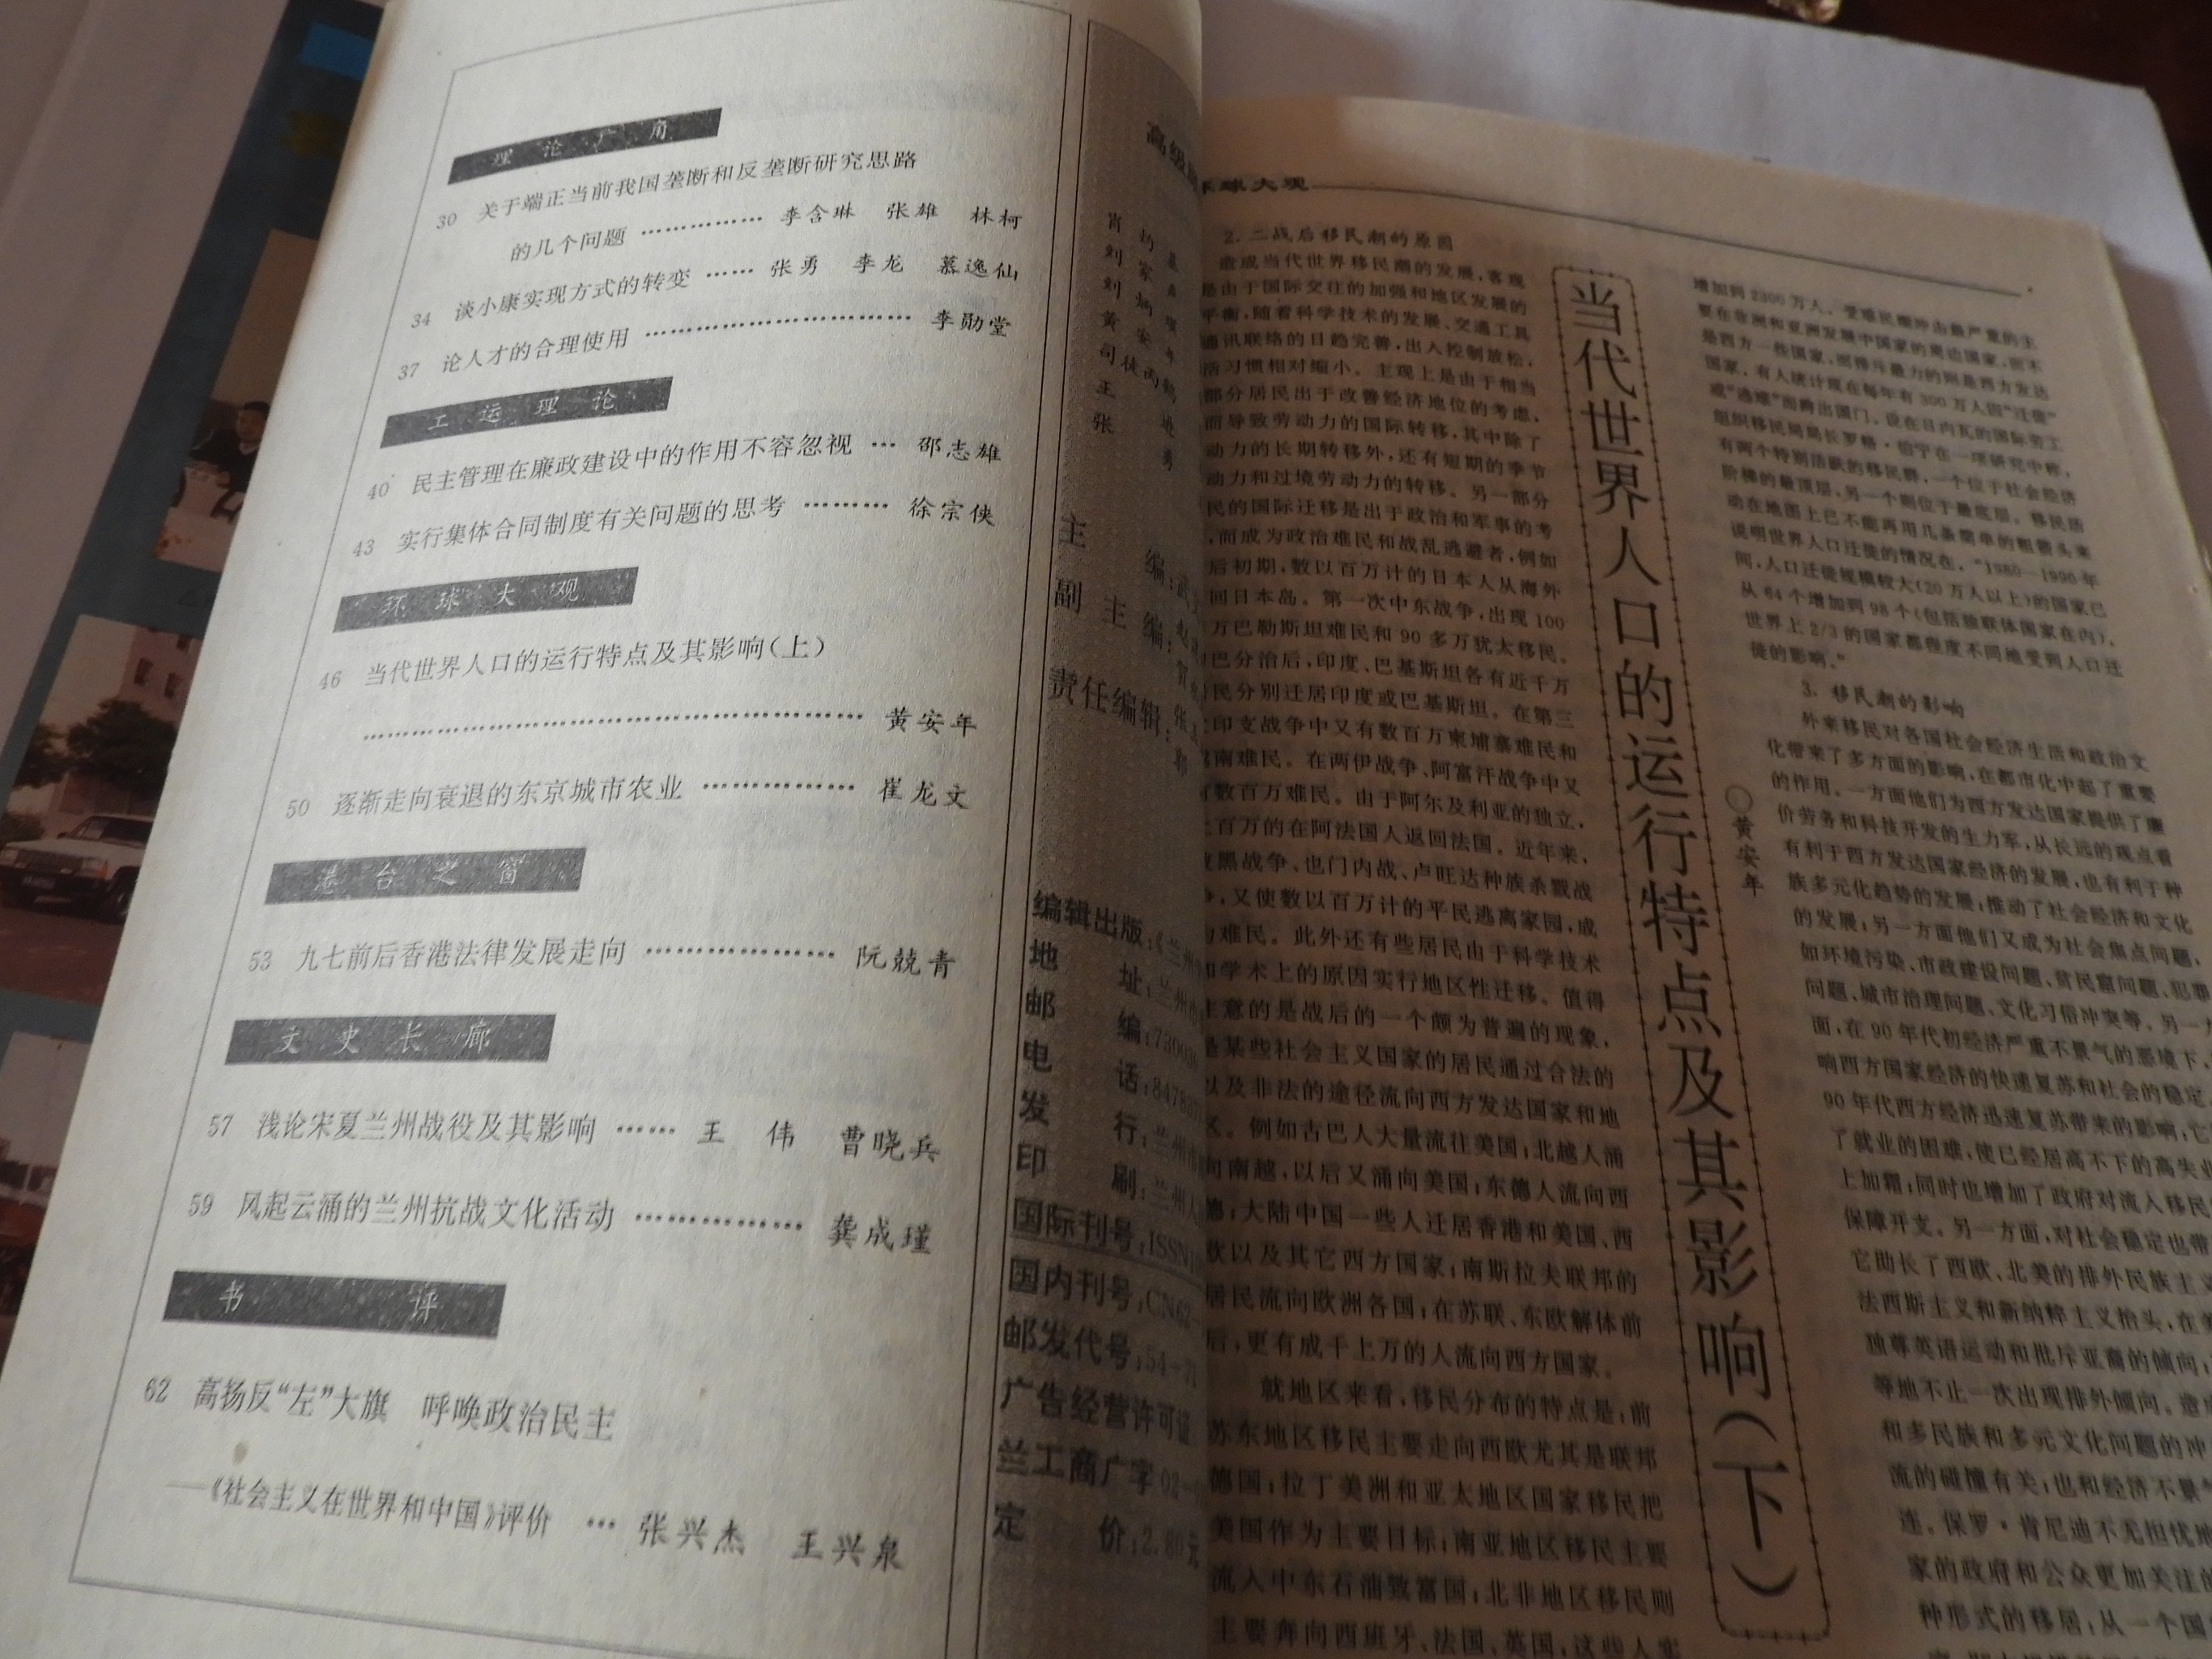 理论广角
30 关于端正当前我国垄断和反垄断研究思路
的几个问题 ………… 李含琳 张雄 林柯
34 谈小康实现方式的转变 …… 张勇 李龙 慕逸仙
37 论人才的合理使用 ………………………… 李勋堂
工运理论
40 民主管理在廉政建设中的作用不容忽视 … 邵志雄
43 实行集体合同制度有关问题的思考 ……… 徐宗侠
环球大观
46 当代世界人口的运行特点及其影响(上)
………………………………………………… 黄安年
50 逐渐走向衰退的东京城市农业 …………… 崔龙文
港台之窗
53 九七前后香港法律发展走向 ……………… 阮兢青
文史长廊
57 浅论宋夏兰州战役及其影响 …… 王 伟 曹晓兵
59 风起云涌的兰州抗战文化活动 …………… 龚成瑾
书 评
62 高扬反“左”大旗 呼唤政治民主
——《社会主义在世界和中国》评价 … 张兴杰 王兴泉
高级
主 编:武
副 主 编:
责任编辑:
编辑出版:《兰州
地 址:兰州市
邮 编:730030
电 话:
发 行:兰州市
印 刷:兰州
国际刊号:ISSN
国内刊号:CN62-
邮发代号:54-71
广告经营许可证
兰工商广字02-
定 价:2.80元
球大观
2. 二战后移民潮的原因
造成当代世界移民潮的发展,客观
是由于国际交往的加强和地区发展的
平衡,随着科学技术的发展、交通工具
通讯联络的日趋完善,出入控制放松,
活习惯相对缩小。主观上是由于相当
部分居民出于改善经济地位的考虑,
而导致劳动力的国际转移,其中除了
动力的长期转移外,还有短期的季节
动力和过境劳动力的转移。另一部分
民的国际迁移是出于政治和军事的考
,而成为政治难民和战乱逃避者,例如
后初期,数以百万计的日本人从海外
回日本岛。第一次中东战争,出现100
万巴勒斯坦难民和90多万犹太移民。
巴分治后,印度、巴基斯坦各有近千万
民分别迁居印度或巴基斯坦。在第三
印支战争中又有数百万柬埔寨难民和
南难民。在两伊战争、阿富汗战争中又
数百万难民。由于阿尔及利亚的独立,
上百万的在阿法国人返回法国。近年来,
波黑战争、也门内战、卢旺达种族杀戮战
争,又使数以百万计的平民逃离家园,成
为难民。此外还有些居民由于科学技术
和学术上的原因实行地区性迁移。值得
注意的是战后的一个颇为普遍的现象,
是某些社会主义国家的居民通过合法的
以及非法的途径流向西方发达国家和地
区。例如古巴人大量流往美国;北越人涌
向南越,以后又涌向美国;东德人流向西
德;大陆中国一些人迁居香港和美国、西
欧以及其它西方国家;南斯拉夫联邦的
居民流向欧洲各国;在苏联、东欧解体前
后,更有成千上万的人流向西方国家。
就地区来看,移民分布的特点是:前
苏东地区移民主要走向西欧尤其是联邦
德国;拉丁美洲和亚太地区国家移民把
美国作为主要目标;南亚地区移民主要
流入中东石油致富国;北非地区移民则
主要奔向西班牙、法国、英国;这些人
当代世界人口的运行特点及其影响(下)
○黄安年
增加到2300万人。受难民潮冲击最严重的主
要在非洲和亚洲发展中国家的周边国家,而不
是西方一些国家,而排斥最力的则是西方发达
国家。有人统计现在每年有300万人因“迁徙”
或“逃难”而跨出国门。设在日内瓦的国际劳工
组织移民局局长罗格·伯宁在一项研究中称,
有两个特别活跃的移民群,一个位于社会经济
阶梯的最顶层,另一个则位于最底层。移民活
动在地图上已不能再用几条简单的粗箭头来
说明世界人口迁徙的情况在。“1980—1990年
间,人口迁徙规模较大(20万人以上)的国家已
从64个增加到98个(包括独联体国家在内),
世界上2/3的国家都程度不同地受到人口迁
徙的影响。”
3. 移民潮的影响
外来移民对各国社会经济生活和政治文
化带来了多方面的影响,在都市化中起了重要
的作用。一方面他们为西方发达国家提供了廉
价劳务和科技开发的生力军,从长远的观点看
有利于西方发达国家经济的发展,也有利于种
族多元化趋势的发展;推动了社会经济和文化
的发展;另一方面他们又成为社会焦点问题,
如环境污染、市政建设问题、贫民窟问题、犯罪
问题、城市治理问题、文化习俗冲突等。另一
面,在90年代初经济严重不景气的恶境下,
响西方国家经济的快速复苏和社会的稳定。
90年代西方经济迅速复苏带来的影响,它
了就业的困难,使已经居高不下的高失业
上加霜;同时也增加了政府对流入移民
保障开支。另一方面,对社会稳定也带
它助长了西欧、北美的排外民族主义
法西斯主义和新纳粹主义抬头,在美
独尊英语运动和批斥亚裔的倾向;
等地不止一次出现排外倾向。造成
和多民族和多元文化问题的冲
流的碰撞有关;也和经济不景气
连。保罗·肯尼迪不无担忧地
家的政府和公众更加关注的
种形式的移居:从一个国